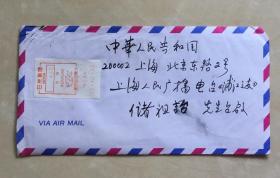 中華人民共和国
200002 上海 北京东路2号
上海人民广播电台《浦江之声》
储祖诒 先生台啟
VIA AIR MAIL